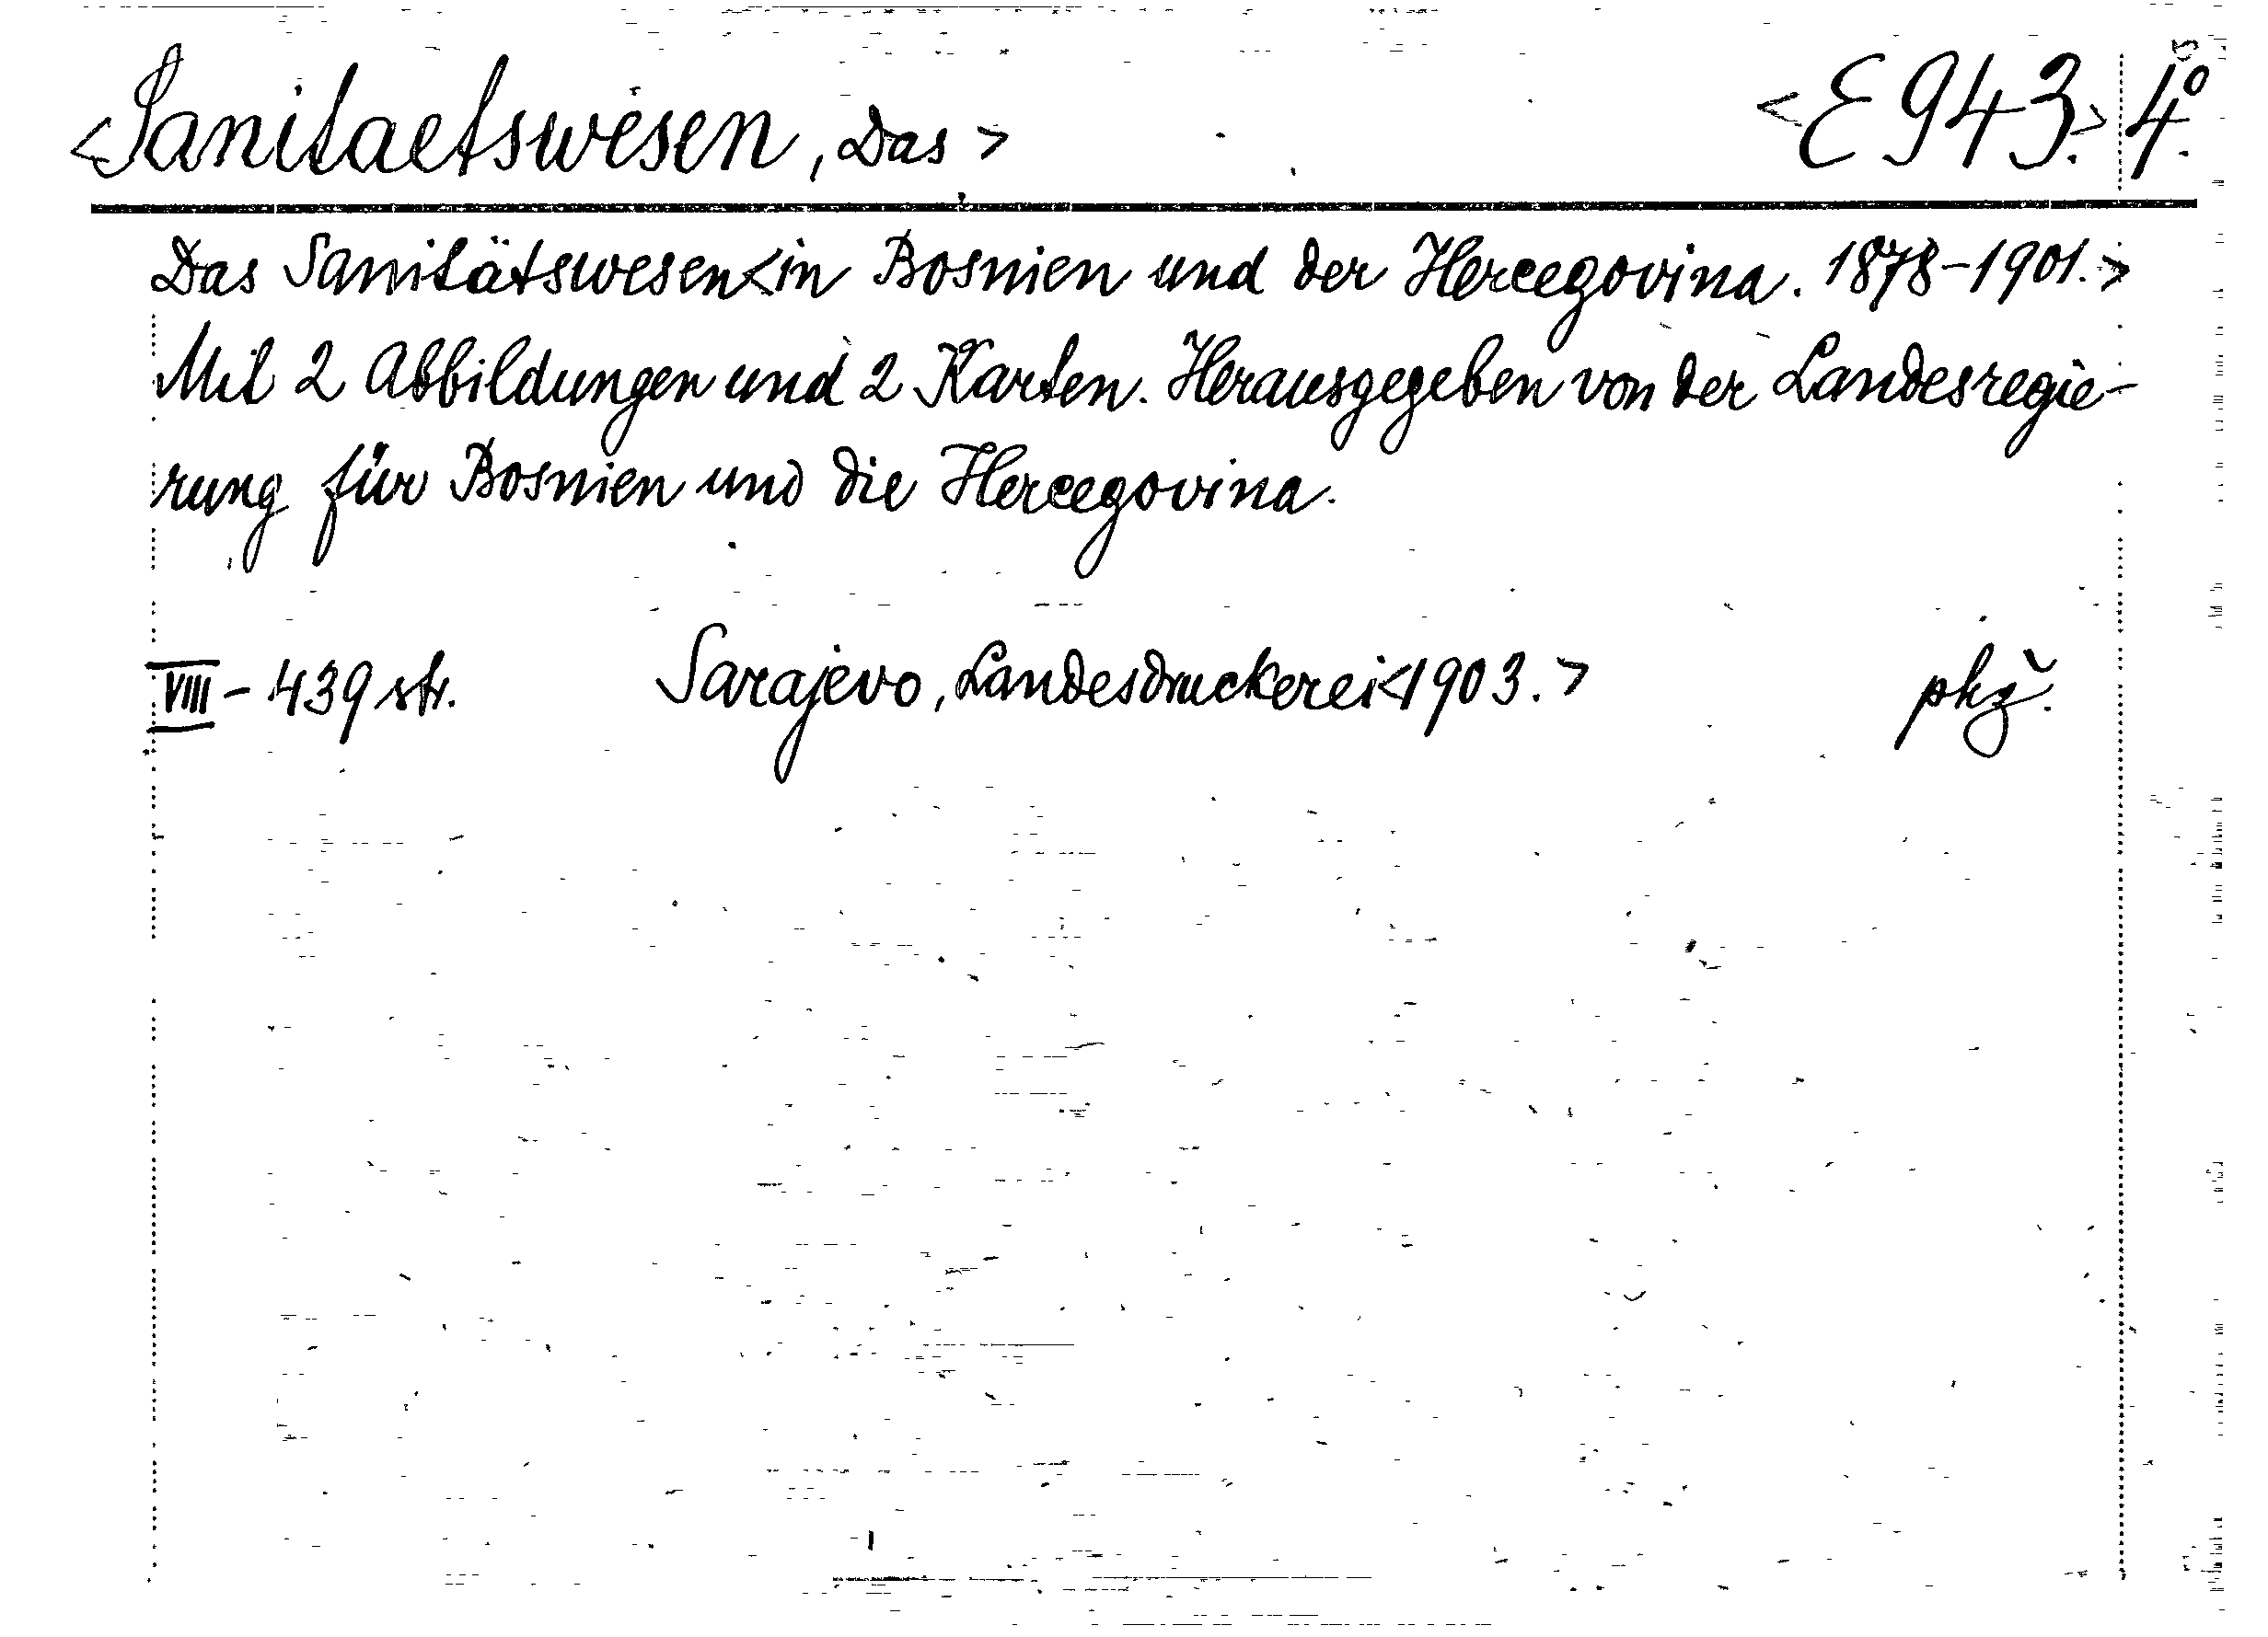 <Sanitaetswesen, Das> <E 943.> 4º.
Das Sanitätswesen<in Bosnien und der Hercegovina. 1878-1901.>
Mit 2 Abbildungen und 2 Karten. Herausgegeben von der Landesregie-
rung für Bosnien und die Hercegovina.
VIII - 439 str. Sarajevo, Landesdruckerei<1903.> pkž.